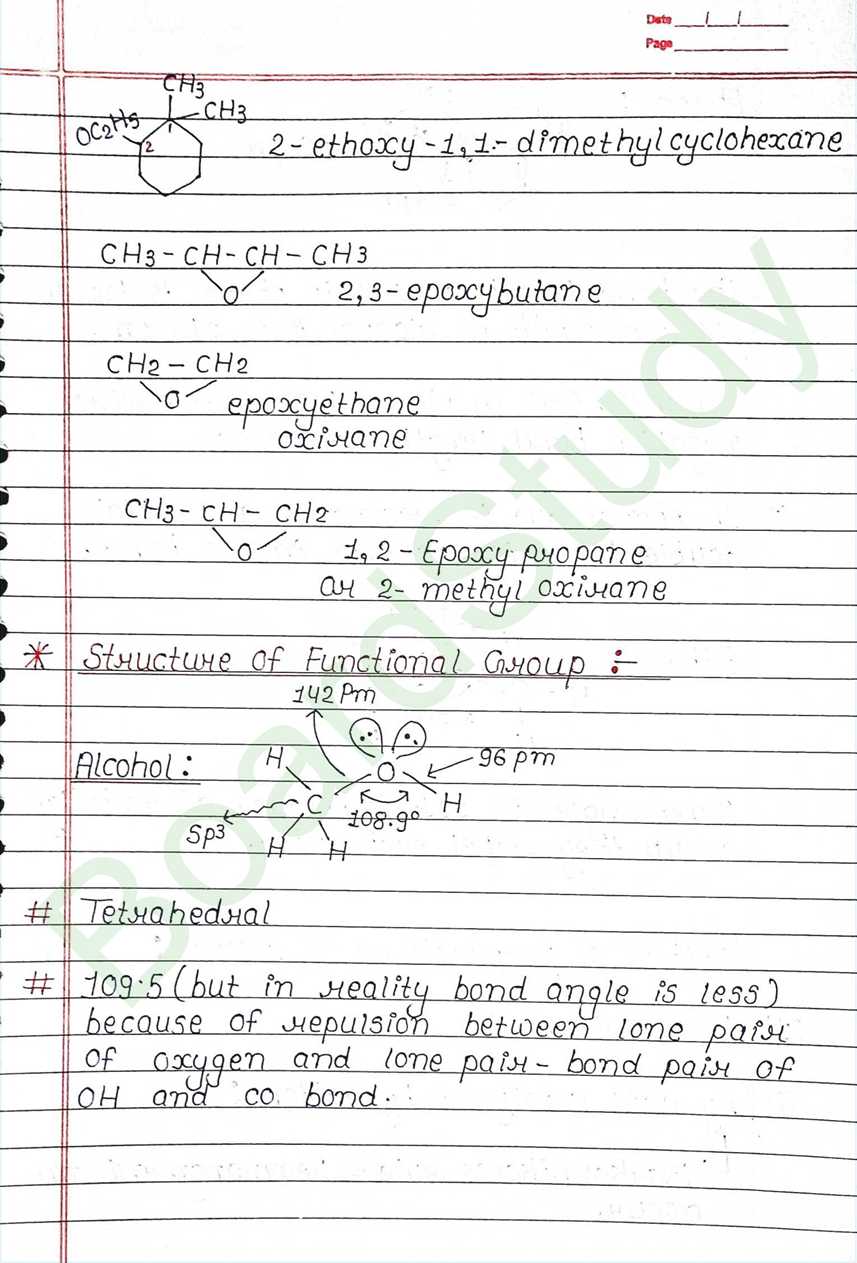 Date / /
Page
CH3
CH3
OC2H5
1
2
2- ethoxy -1,1.- dimethylcyclohexane
CH3 - CH - CH - CH3
O
2,3-epoxybutane
CH2 - CH2
O
epoxyethane
oxirane
CH3 - CH - CH2
O
1,2 - Epoxy propane
or 2- methyl oxirane
* Structure of Functional Group :-
142 Pm
Alcohol :
H
O
96 pm
C
H
108.9°
Sp3
H
H
# Tetrahedral
# 109.5 (but in reality bond angle is less)
because of repulsion between lone pair
of oxygen and lone pair - bond pair of
OH and co. bond.
BoardStudy